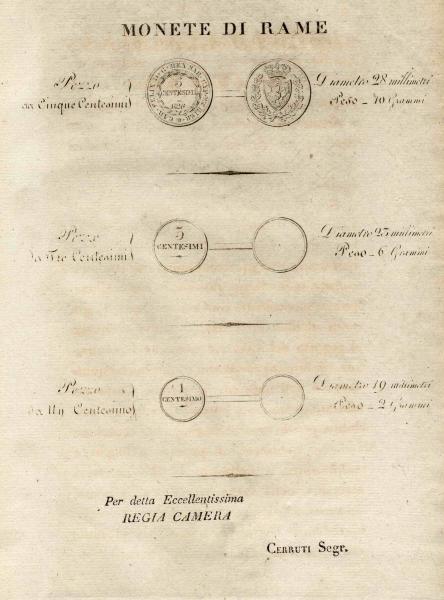 MONETE DI RAME
Pezzo
da Cinque Centesimi
CAR. FELIX
5
CENTESIMI
1826
Diametro 28 millimetri
Peso - 10 Grammi
Pezzo
da Tre Centesimi
3
CENTESIMI
Diametro 23 millimetri
Peso - 6 Grammi
Pezzo
da Un Centesimo
1
CENTESIMO
Diametro 19 millimetri
Peso - 2 Grammi
Per detta Eccellentissima
REGIA CAMERA
CERRUTI Segr.